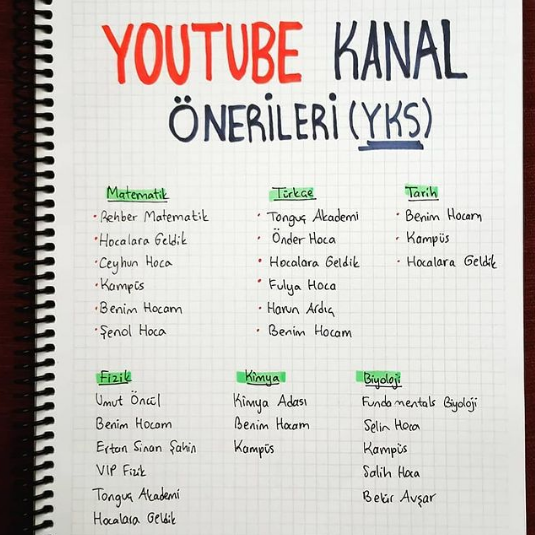 YOUTUBE KANAL
ÖNERİLERİ (YKS)
Matematik
• Rehber Matematik
• Hocalara Geldik
• Ceyhun Hoca
• Kampüs
• Benim Hocam
• Şenol Hoca
Türkçe
• Tonguç Akademi
• Önder Hoca
• Hocalara Geldik
• Fulya Hoca
• Harun Ardıç
• Benim Hocam
Tarih
• Benim Hocam
• Kampüs
• Hocalara Geldik
Fizik
Umut Öncül
Benim Hocam
Ertan Sinan Şahin
VIP Fizik
Tonguç Akademi
Hocalara Geldik
Kimya
Kimya Adası
Benim Hocam
Kampüs
Biyoloji
Fundamentals Biyoloji
Selin Hoca
Kampüs
Salih Hoca
Bekir Avşar